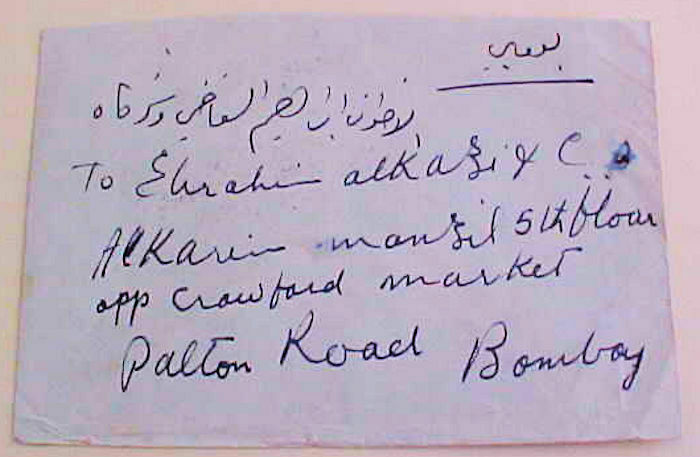 بومبي
الاخوان ابراهيم القاضي وشركاه
To Ebrahim alKazi & Co
AlKarim manzil 5th floor
opp crawford market
Palton Road Bombay